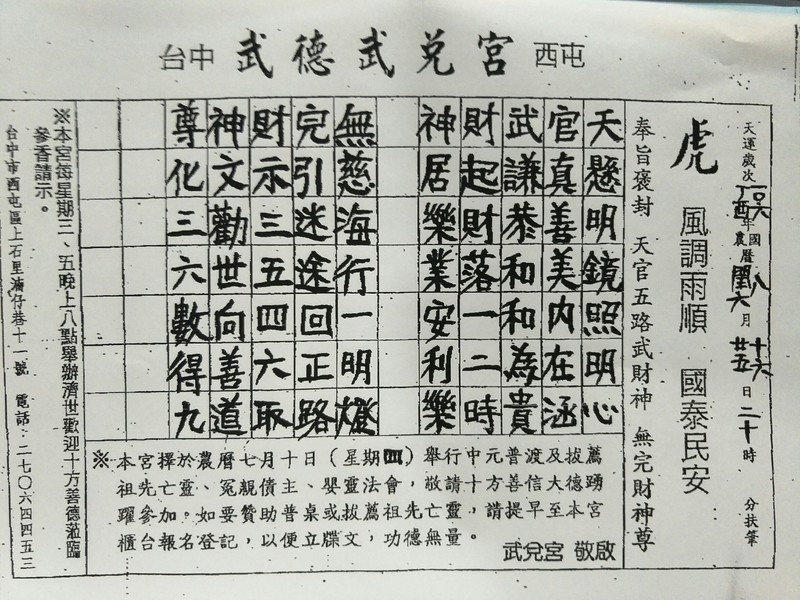 台中 武德武兌宮 西屯
天運歲次一○六丁酉年 國農曆八閏六月 十六廿五日二十時 分扶筆
虎 風調雨順 國泰民安
奉旨褒封 天官五路武財神 無完財神尊
天懸明鏡照明心
官真善美內在涵
武謙恭和和為貴
財起財落一二時
神居樂業安利樂
無慈海行一明燈
完引迷途回正路
財示三五四六取
神文勸世向善道
尊化三六數得九
※本宮擇於農曆七月十日（星期四）舉行中元普渡及拔薦
祖先亡靈、冤親債主、嬰靈法會，敬請十方善大德踴
躍參加。如要贊助普桌或拔薦祖先亡靈，請提早至本宮
櫃台報名登記，以便立牒文，功德無量。
武兌宮 敬啟
※本宮每星期三、五晚上八點舉辦濟世歡迎十方善德蒞臨
參香請示。
台中市西屯區上石里湳仔巷十一號 電話：二七○六四四五三